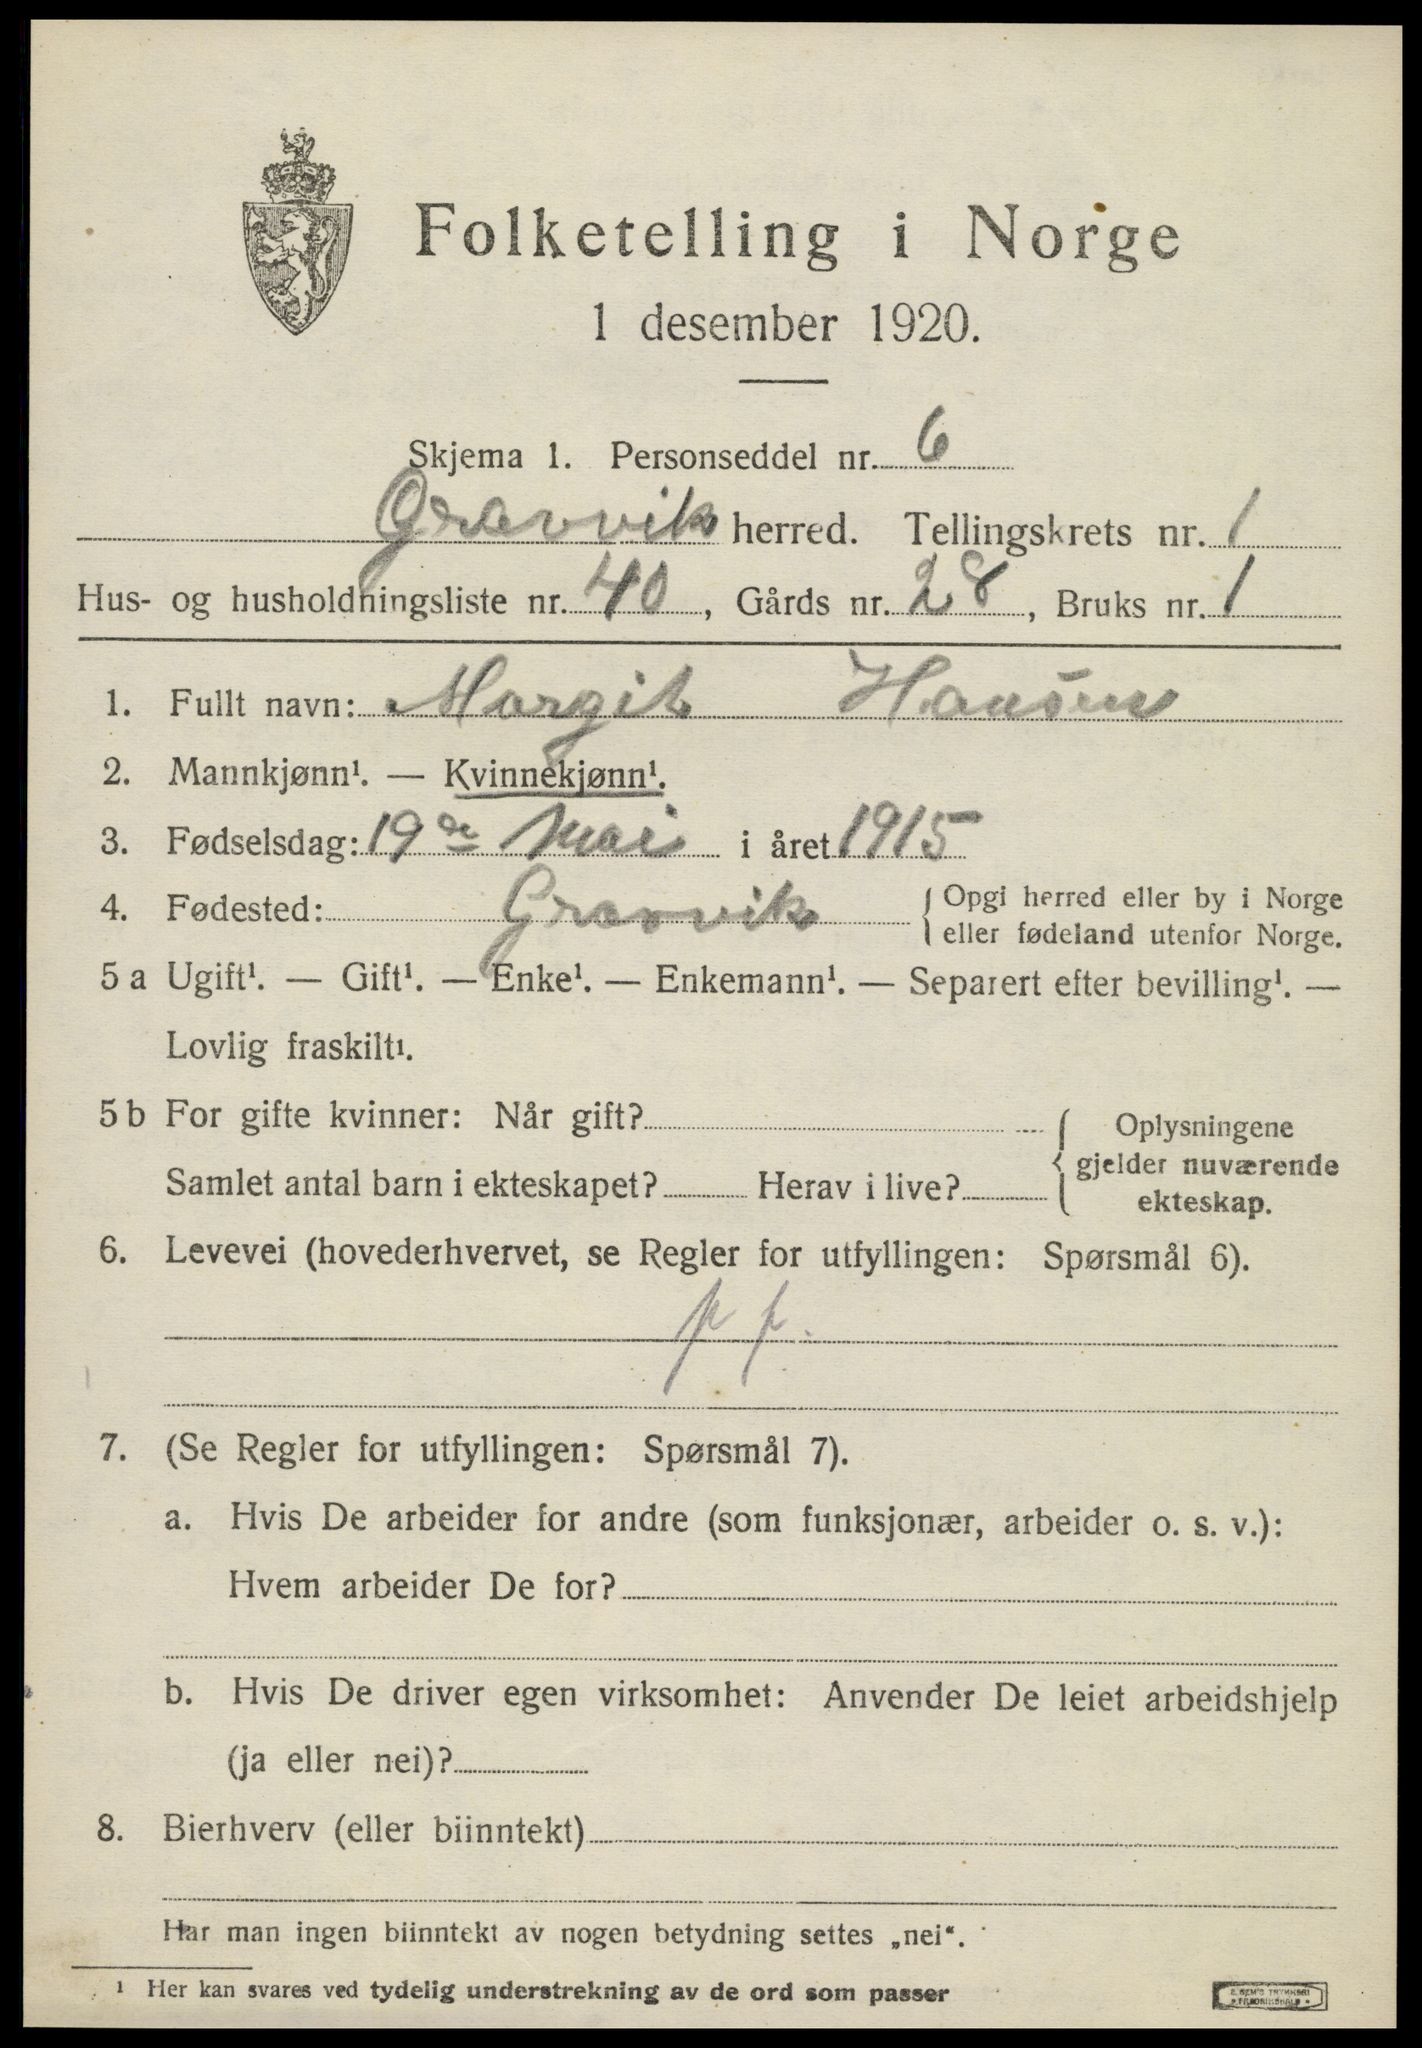 Folketelling i Norge
1 desember 1920.
Skjema 1. Personseddel nr. 6
Gravvik herred. Tellingskrets nr. 1
Hus- og husholdningsliste nr. 40, Gårds nr. 28, Bruks nr. 1
1. Fullt navn: Margit Hansen
2. Mannkjønn¹. — Kvinnekjønn¹.
3. Fødselsdag: 19de Mai i året 1915
4. Fødested: Gravvik { Opgi herred eller by i Norge
eller fødeland utenfor Norge.
5 a Ugift¹. — Gift¹. — Enke¹. — Enkemann¹. — Separert efter bevilling¹. —
Lovlig fraskilt¹.
5 b For gifte kvinner: Når gift? { Oplysningene
gjelder nuværende
Samlet antal barn i ekteskapet? Herav i live? ekteskap.
6. Levevei (hovederhvervet, se Regler for utfyllingen: Spørsmål 6).
p p.
7. (Se Regler for utfyllingen: Spørsmål 7).
a. Hvis De arbeider for andre (som funksjonær, arbeider o. s. v.):
Hvem arbeider De for?
b. Hvis De driver egen virksomhet: Anvender De leiet arbeidshjelp
(ja eller nei)?
8. Bierhverv (eller biinntekt)
Har man ingen biinntekt av nogen betydning settes „nei“.
¹ Her kan svares ved tydelig understrekning av de ord som passer